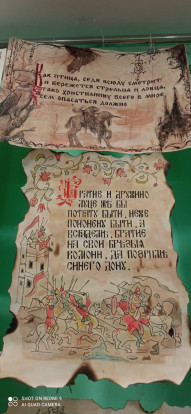 Как птица, седя всюду смотрит
и бережется стрельца и ловца,
тако христианину всего в мире
сем опасаться должно
Братие и дружино
луце жъ бы
потяту быти, неже
полонену быти. а
всядемъ, братие
на свои бръзыя
комони, да позрим
синего Дону.
SHOT ON REDMI 9
AI QUAD CAMERA